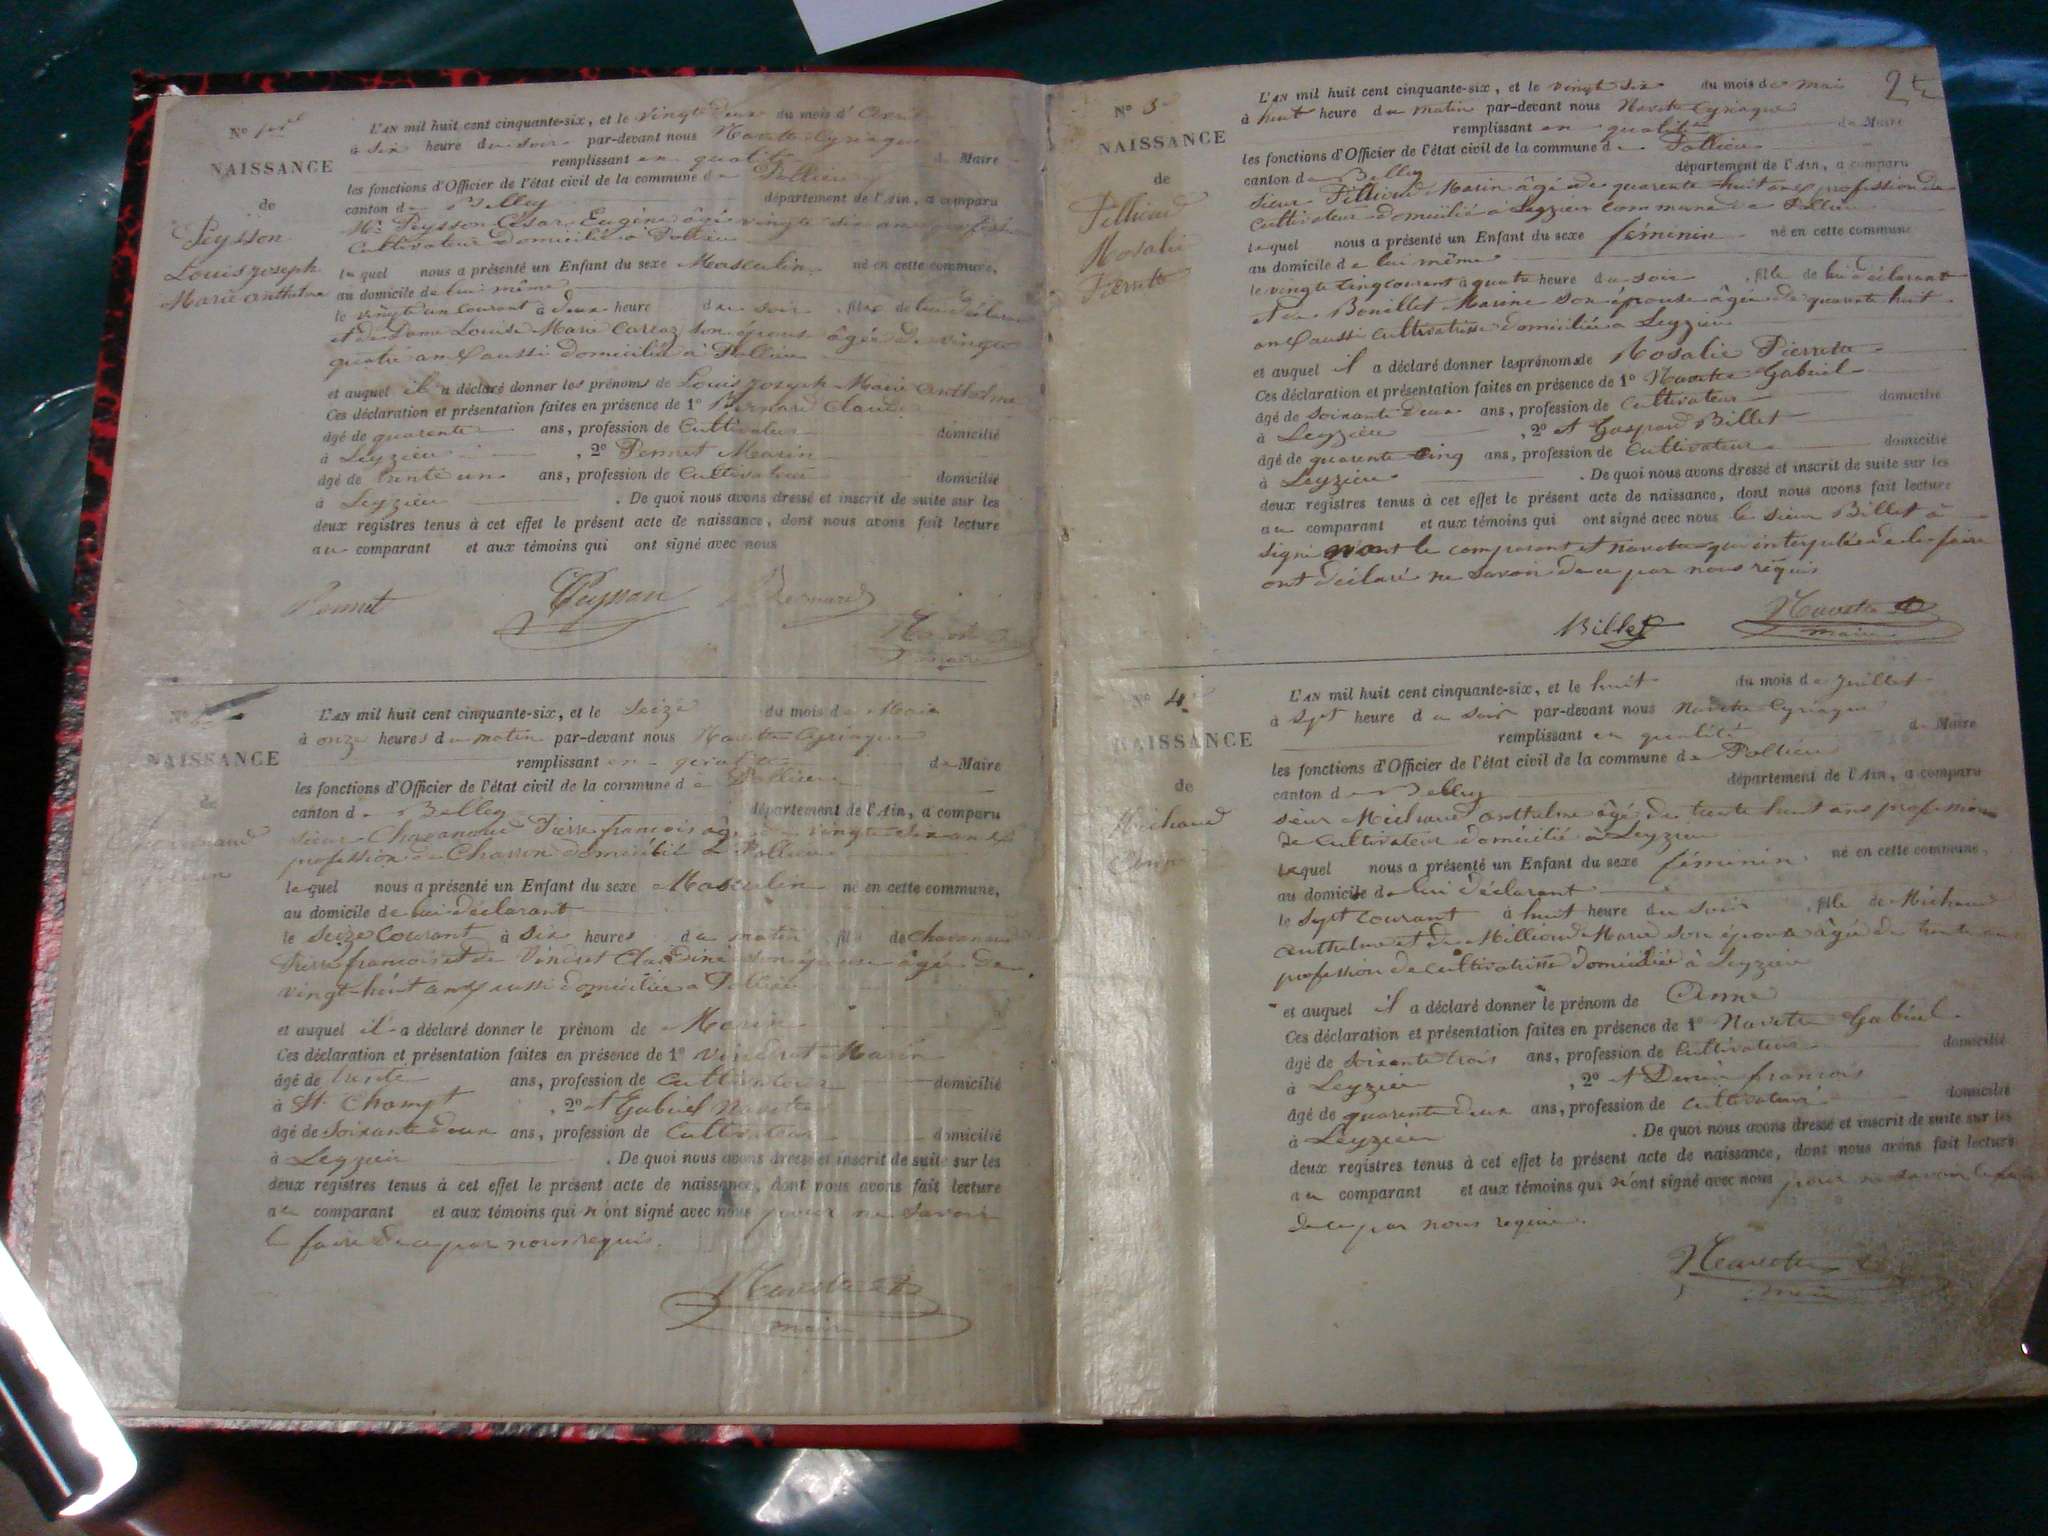 No 1er
NAISSANCE
de
Peysson
Louis Joseph
Marie Anthelme
L'AN mil huit cent cinquante-six, et le vingt deux du mois d' Avril
à six heure du soir par-devant nous Navette Cyriaque
remplissant en qualité de Maire
les fonctions d'Officier de l'état civil de la commune de Pollieu
canton de Belley département de l'Ain, a comparu
Mr Peysson César Eugène âgé vingt six ans profession
cultivateur domicilié à Pollieu
lequel nous a présenté un Enfant du sexe Masculin né en cette commune,
au domicile de lui même
le vingt un courant à deux heure du soir, fils de lui déclarant
et de Dame Louise Marie Carcaz son épouse âgée de vingt
quatre ans aussi domiciliée à Pollieu
et auquel il a déclaré donner les prénoms de Louis Joseph Marie Anthelme
Ces déclaration et présentation faites en présence de 1o Bernard Claude
âgé de quarente ans, profession de Cultivateur domicilié
à Leyzieu, 2o Pennet Marin
âgé de trente un ans, profession de Cultivateur domicilié
à Leyzieu. De quoi nous avons dressé et inscrit de suite sur les
deux registres tenus à cet effet le présent acte de naissance, dont nous avons fait lecture
au comparant et aux témoins qui ont signé avec nous
Pennet Peysson Bernard
Navette
maire
No
NAISSANCE
de
L'AN mil huit cent cinquante-six, et le seize du mois de Mai
à onze heures du matin par-devant nous Navette Cyriaque
remplissant en qualité de Maire
les fonctions d'Officier de l'état civil de la commune de Pollieu
canton de Belley département de l'Ain, a comparu
sieur Chavanaud Pierre françois âgé de vingt ans
profession de domicilié à Pollieu
lequel nous a présenté un Enfant du sexe Masculin né en cette commune,
au domicile de lui déclarant
le seize courant à six heures du matin, fils de Chavanaud
Pierre françois et de Vindret Claudine son épouse âgée de
vingt-huit ans aussi domiciliée à Pollieu
et auquel il a déclaré donner le prénom de Marin
Ces déclaration et présentation faites en présence de 1o Vindret Marin
âgé de trente ans, profession de cultivateur domicilié
à St Champt, 2o et Gabriel Navette
âgé de soixante deux ans, profession de Cultivateur domicilié
à Leyzieu. De quoi nous avons dressé et inscrit de suite sur les
deux registres tenus à cet effet le présent acte de naissance, dont nous avons fait lecture
au comparant et aux témoins qui n'ont signé avec nous pour ne savoir
le faire de ce par nous requis.
Navette
maire
25
No 3
NAISSANCE
de
Pillioud
Rosalie
Pierrette
L'AN mil huit cent cinquante-six, et le vingt six du mois de mai
à huit heure du matin par-devant nous Navette Cyriaque
remplissant en qualité de Maire
les fonctions d'Officier de l'état civil de la commune de Pollieu
canton de Belley département de l'Ain, a comparu
sieur Pillioud Marin âgé de quarente huit ans profession de
Cultivateur domicilié à Leyzieu commune de Pollieu
lequel nous a présenté un Enfant du sexe féminin né en cette commune
au domicile de lui même
le vingt cinq courant à quatre heure du soir, fille de lui déclarant
et de Bouillet Marine son épouse âgée de quarente huit
ans aussi cultivatrisse domiciliée à Leyzieu
et auquel il a déclaré donner les prénoms de Rosalie Pierrette
Ces déclaration et présentation faites en présence de 1o Navette Gabriel
âgé de soixante deux ans, profession de Cultivateur domicilié
à Leyzieu, 2o et Gaspard Billet
âgé de quarente cinq ans, profession de Cultivateur domicilié
à Leyzieu. De quoi nous avons dressé et inscrit de suite sur les
deux registres tenus à cet effet le présent acte de naissance, dont nous avons fait lecture
au comparant et aux témoins qui ont signé avec nous le sieur Billet à
signé le comparant et Navette qui interpellé de le faire
ont déclaré ne savoir de ce par nous requis
Billet Navette
maire
No 4
NAISSANCE
de
Michaud
Anne
L'AN mil huit cent cinquante-six, et le huit du mois de Juillet
à sept heure du soir par-devant nous Navette Cyriaque
remplissant en qualité de Maire
les fonctions d'Officier de l'état civil de la commune de Pollieu
canton de Belley département de l'Ain, a comparu
sieur Michaud Anthelme âgé de trente huit ans profession
de Cultivateur domicilié à Leyzieu
lequel nous a présenté un Enfant du sexe féminin né en cette commune,
au domicile de lui déclarant
le sept courant à huit heure du soir, fille de Michaud
Anthelme et de Millioud Marie son épouse âgée de trente ans
profession de cultivatrisse domiciliée à Leyzieu
et auquel il a déclaré donner le prénom de Anne
Ces déclaration et présentation faites en présence de 1o Navette Gabriel
âgé de soixante trois ans, profession de Cultivateur domicilié
à Leyzieu, 2o et françois
âgé de quarente deux ans, profession de cultivateur domicilié
à Leyzieu. De quoi nous avons dressé et inscrit de suite sur les
deux registres tenus à cet effet le présent acte de naissance, dont nous avons fait lecture
au comparant et aux témoins qui n'ont signé avec nous pour ne savoir le faire
de ce par nous requis.
Navette
maire